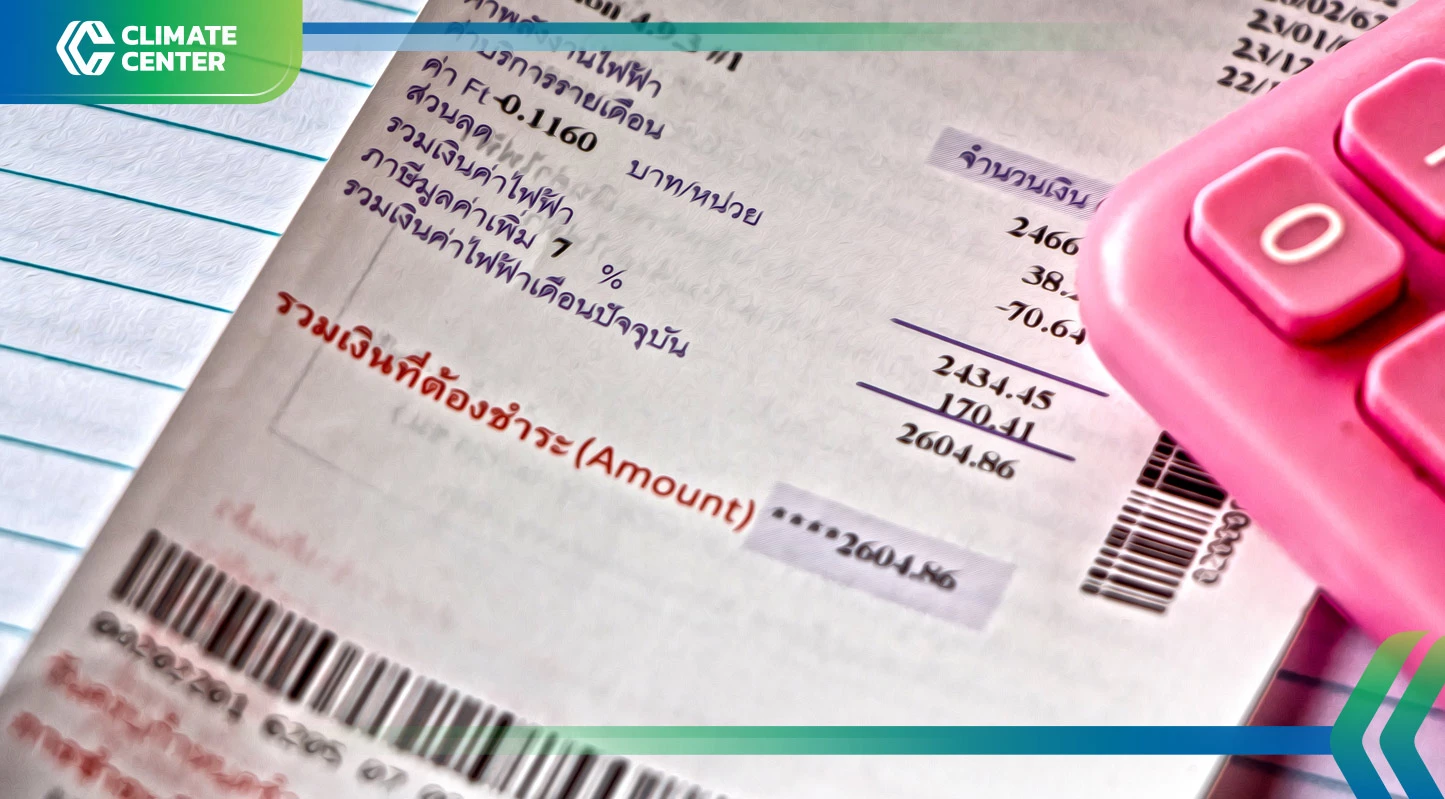 CLIMATE
CENTER
ค่าพลังงานไฟฟ้า
ค่าบริการรายเดือน
ค่า Ft -0.1160 บาท/หน่วย
ส่วนลด
รวมเงินค่าไฟฟ้า
ภาษีมูลค่าเพิ่ม 7 %
รวมเงินค่าไฟฟ้าเดือนปัจจุบัน
จำนวนเงิน
2466
38.
-70.64
2434.45
170.41
2604.86
รวมเงินที่ต้องชำระ (Amount) ****2604.86
23/01/
23/12
22/
0